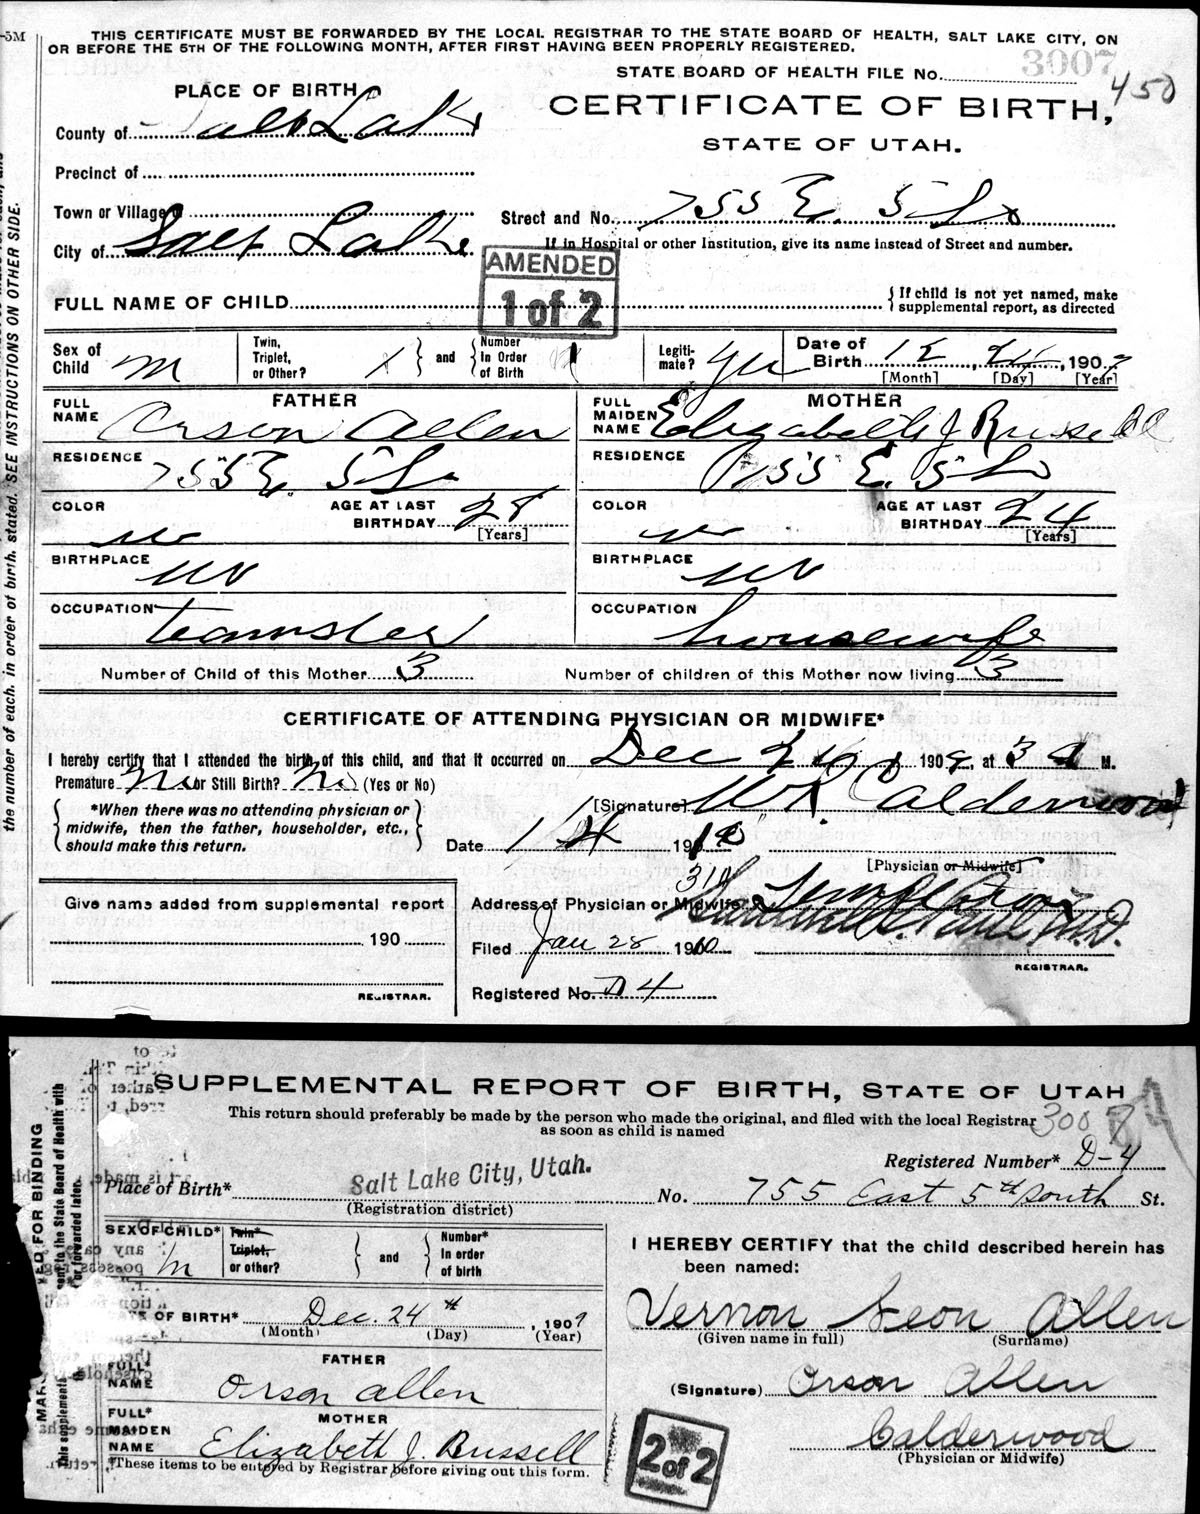 5M
THIS CERTIFICATE MUST BE FORWARDED BY THE LOCAL REGISTRAR TO THE STATE BOARD OF HEALTH, SALT LAKE CITY, ON
OR BEFORE THE 5TH OF THE FOLLOWING MONTH, AFTER FIRST HAVING BEEN PROPERLY REGISTERED.
STATE BOARD OF HEALTH FILE No. 3007
450
PLACE OF BIRTH
CERTIFICATE OF BIRTH,
STATE OF UTAH.
County of Salt Lake
Precinct of
Town or Village of
Street and No. 755 E. 5 So
City of Salt Lake
If in Hospital or other Institution, give its name instead of Street and number.
AMENDED
1 of 2
FULL NAME OF CHILD
{ If child is not yet named, make
supplemental report, as directed
Sex of Child M
Twin, Triplet, or Other? 1 } and { Number In Order of Birth 1
Legitimate? Yes
Date of Birth 12, 24, 1909
[Month] [Day] [Year]
FATHER
FULL NAME Orson Allen
RESIDENCE 755 E. 5 So
COLOR w
AGE AT LAST BIRTHDAY 28
[Years]
BIRTHPLACE
OCCUPATION teamster
MOTHER
FULL MAIDEN NAME Elizabeth J Russell
RESIDENCE 755 E. 5 So
COLOR w
AGE AT LAST BIRTHDAY 24
[Years]
BIRTHPLACE
OCCUPATION housewife
Number of Child of this Mother 3
Number of children of this Mother now living 3
CERTIFICATE OF ATTENDING PHYSICIAN OR MIDWIFE*
I hereby certify that I attended the birth of this child, and that it occurred on Dec 24, 1909, at 3 a M.
Premature No or Still Birth? No (Yes or No)
{ *When there was no attending physician or
midwife, then the father, householder, etc.,
should make this return. }
[Signature] Calderwood
Date 1/4 1910
[Physician or Midwife]
Address of Physician or Midwife 310 Templeton
Filed Jan 28 1910
M.D.
REGISTRAR.
Registered No. D 4
Give name added from supplemental report
190
REGISTRAR.
the number of each, in order of birth, stated. SEE INSTRUCTIONS ON OTHER SIDE.
SUPPLEMENTAL REPORT OF BIRTH, STATE OF UTAH
This return should preferably be made by the person who made the original, and filed with the local Registrar
as soon as child is named
3007
Registered Number* D-4
Place of Birth* Salt Lake City, Utah.
(Registration district)
No. 755 East 5th South St.
SEX OF CHILD* M
Twin* Triplet, or other? } and { Number* In order of birth
DATE OF BIRTH* Dec. 24th, 1909
(Month) (Day) (Year)
FATHER
FULL* NAME Orson Allen
MOTHER
FULL* MAIDEN NAME Elizabeth J. Russell
*These items to be entered by Registrar before giving out this form.
I HEREBY CERTIFY that the child described herein has
been named:
Vernon Leon Allen
(Given name in full) (Surname)
(Signature) Orson Allen
Calderwood
(Physician or Midwife)
2 of 2